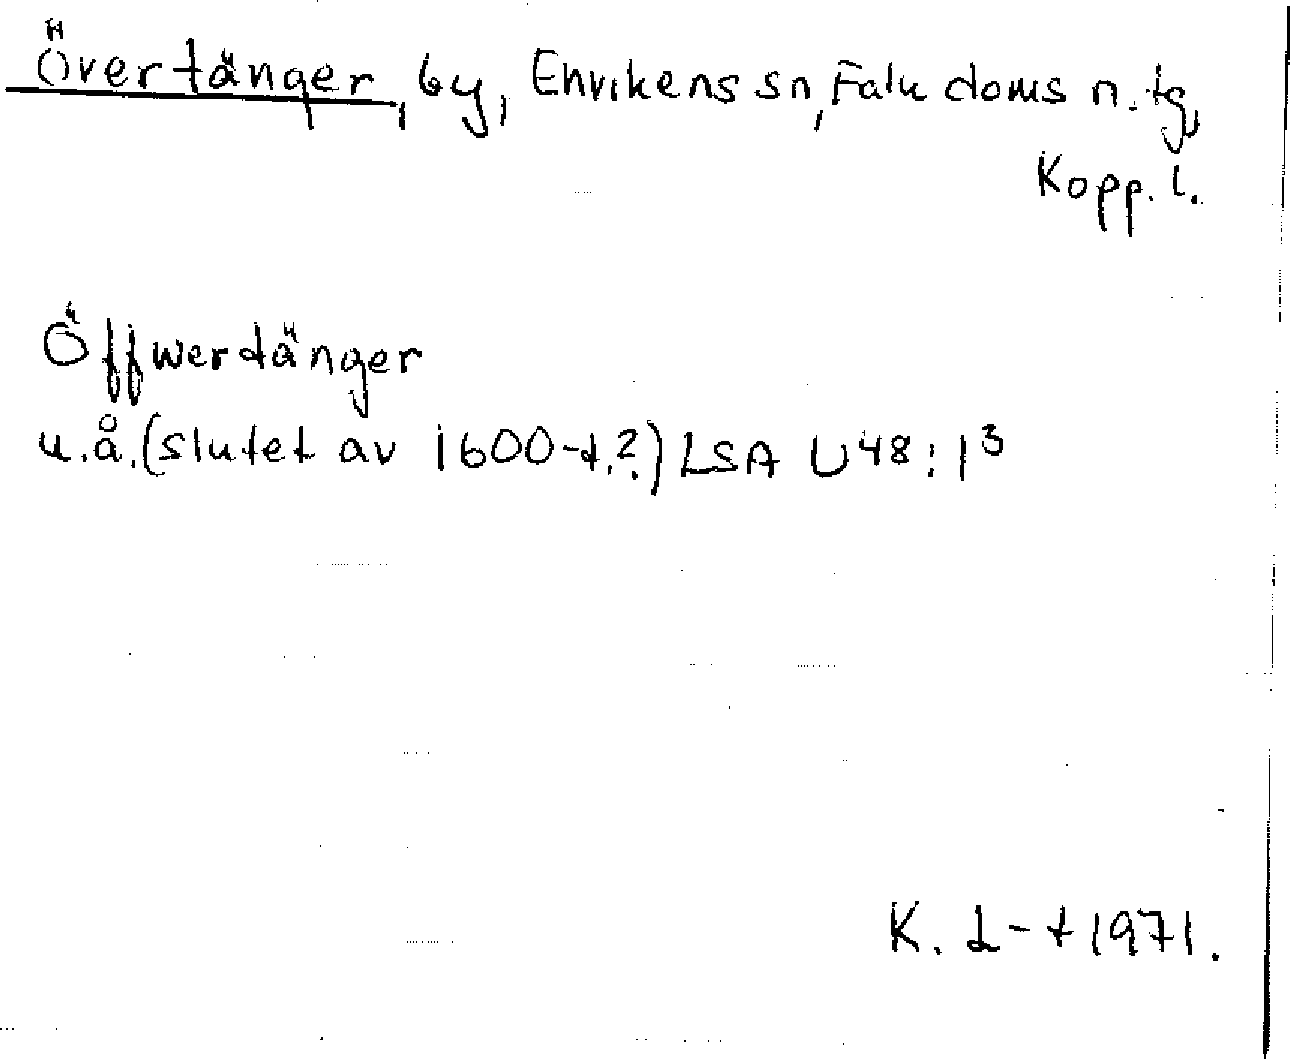 Övertänger, by, Envikens sn, Falu doms n. tg,
Kopp. l.
Öffwerdänger
u.å. (slutet av 1600-t.?) LSA U48:1³
K. L-t 1971.